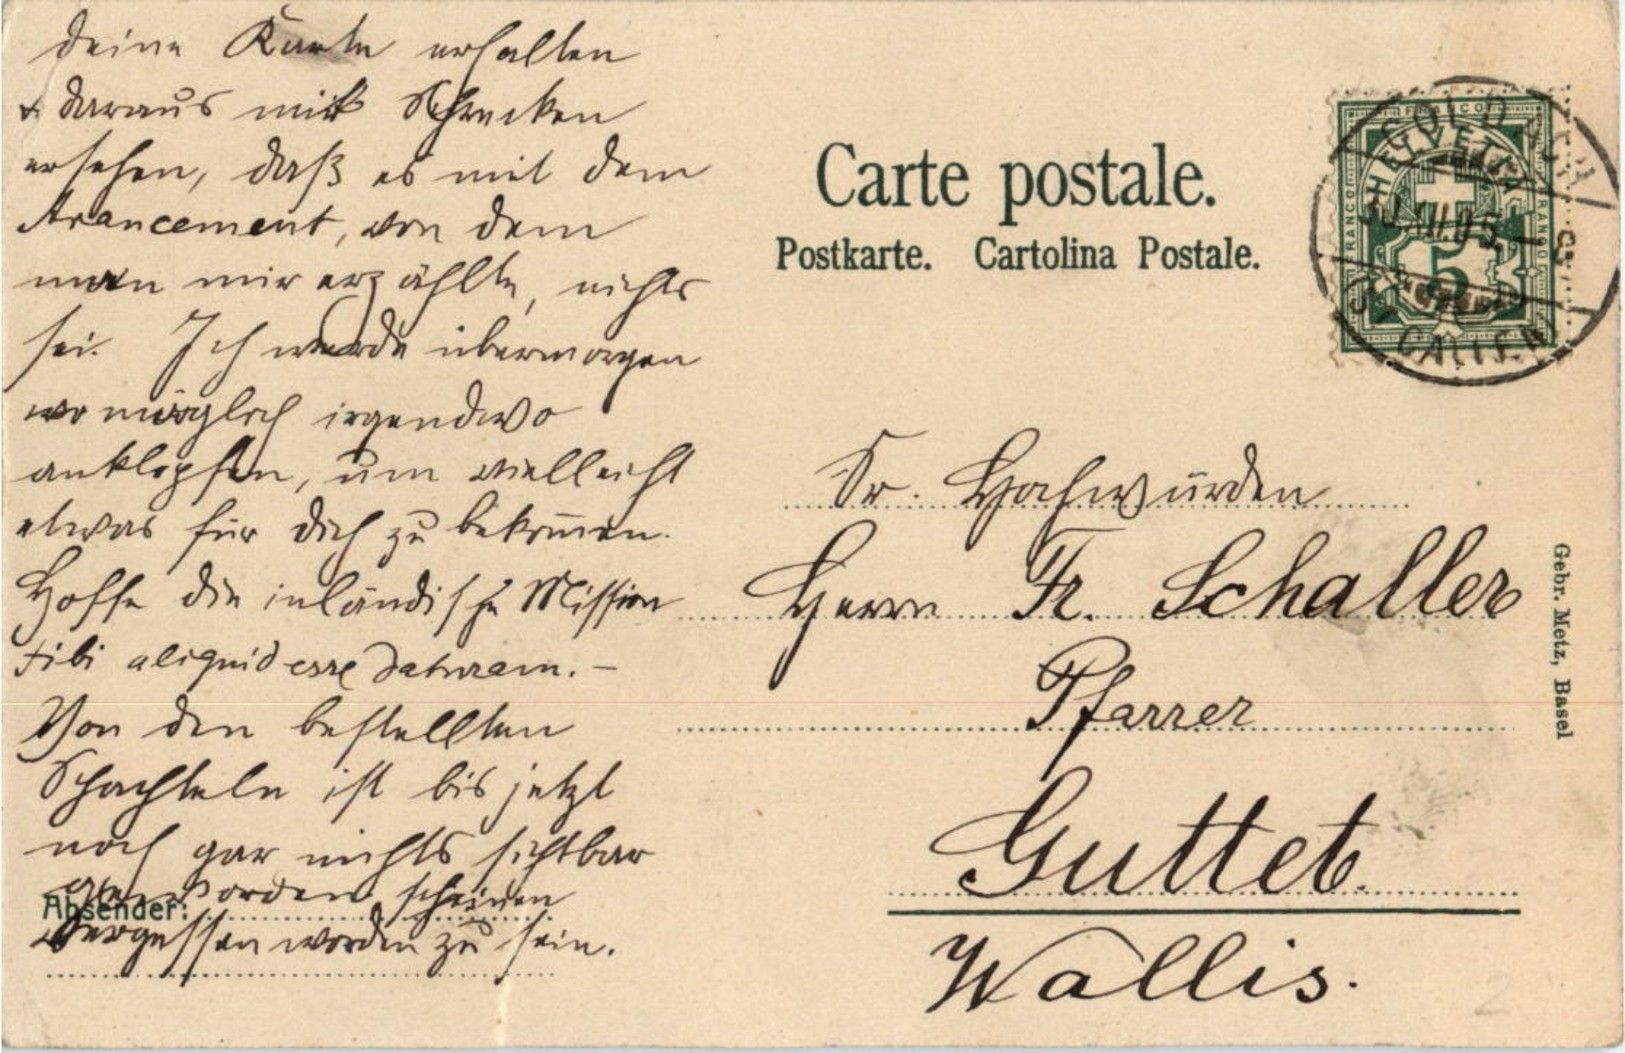 deine Karte erhalten
& daraus mit Schrecken
ersehen, daß es mit dem
Arancement, von dem
man mir erzählte, nichts
sei. Ich werde übermorgen
wo möglich irgendwo
anklopfen, um vielleicht
etwas für dich zu bekom̅en.
Hoffe die inländische Mission
tibi aliquid esse daturam. –
Von den bestellten
Schachteln ist bis jetzt
noch gar nichts sichtbar
geworden scheinen
vergessen worden zu sein.
Absender:
Carte postale.
Postkarte. Cartolina Postale.
FRANCO
HELVETIA
FRANCO
5
GOLDACH
XII.05
ST. GALLEN
Sr. Hochwürden
Herrn Fr. Schaller
Pfarrer
Guttet.
Wallis.
Gebr. Metz, Basel
2